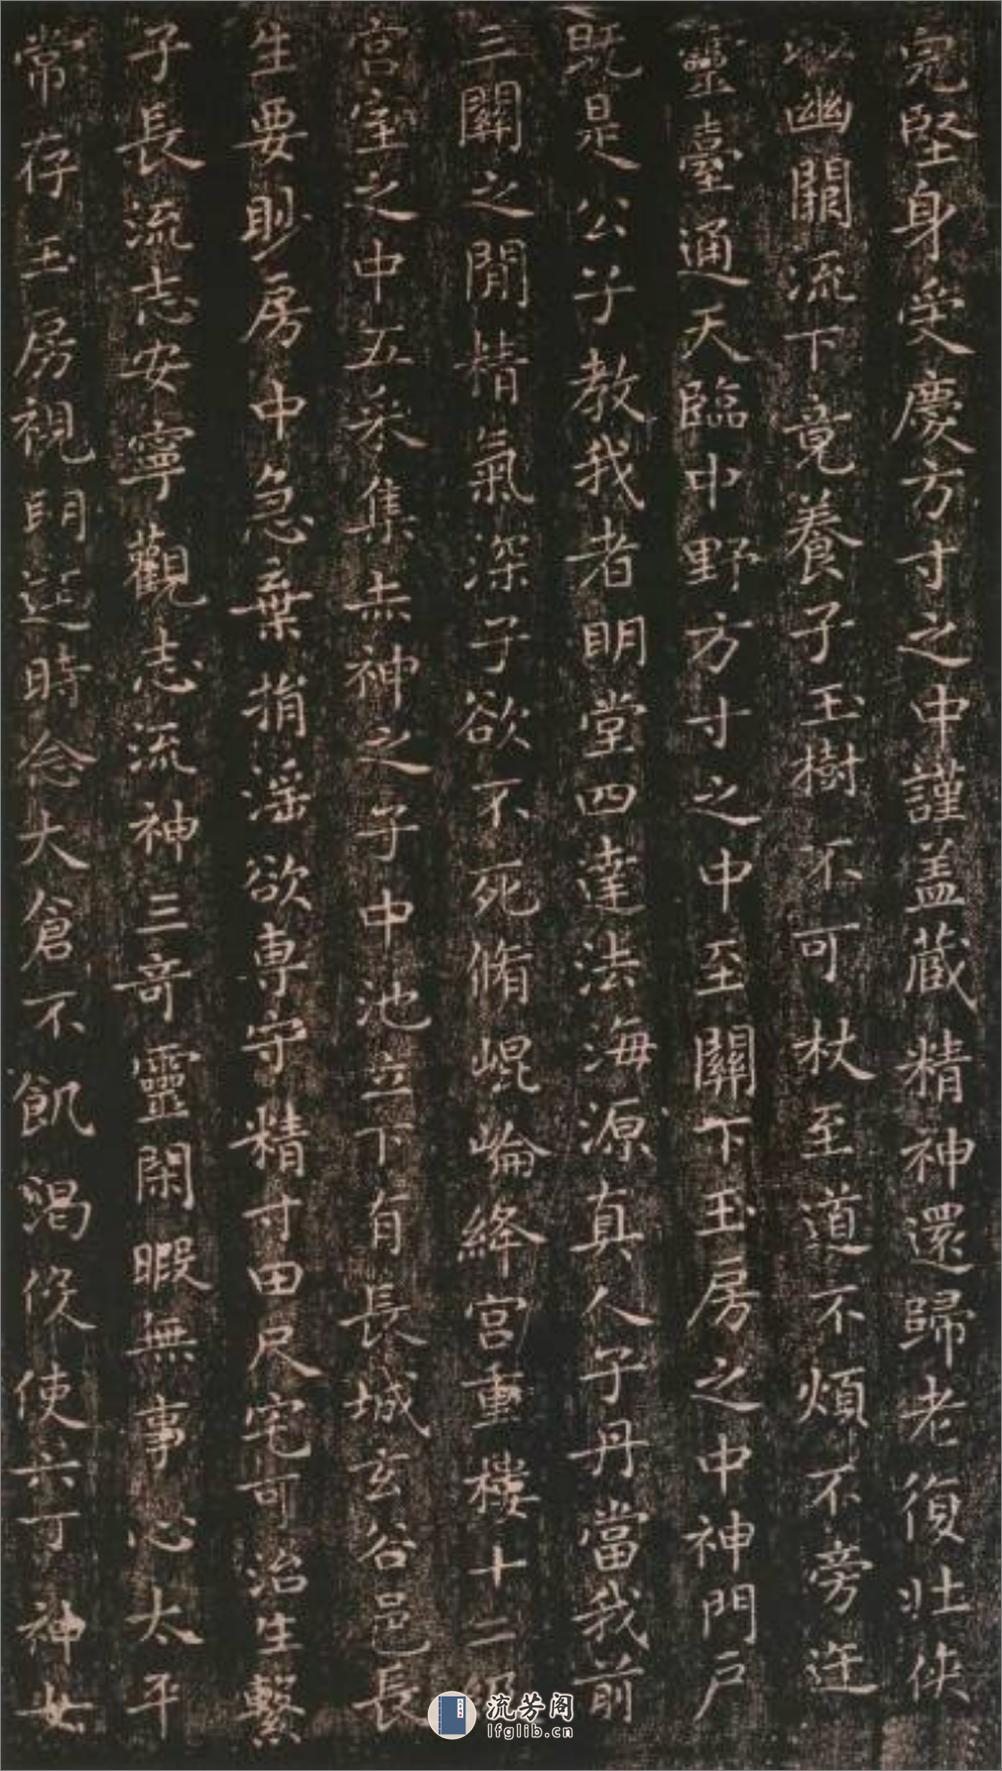 完堅身受慶方寸之中謹盖藏精神還歸老復壯俠
以幽關流下竟養子玉樹不可杖至道不煩不旁迕
靈臺通天臨中野方寸之中至關下玉房之中神門戶
既是公子教我者明堂四達法海源真人子丹當我前
三關之間精氣深子欲不死脩崐崘絳宮重樓十二
宮室之中五采集赤神之子中池立下有長城玄谷邑長
生要眇房中急棄捐淫欲専守精寸田尺宅可治生繫
子長流志安寧觀志流神三奇靈閑暇無事心太平
常存玉房視明達時念大倉不飢渴役使六丁神女
流芳阁
lfglib.cn